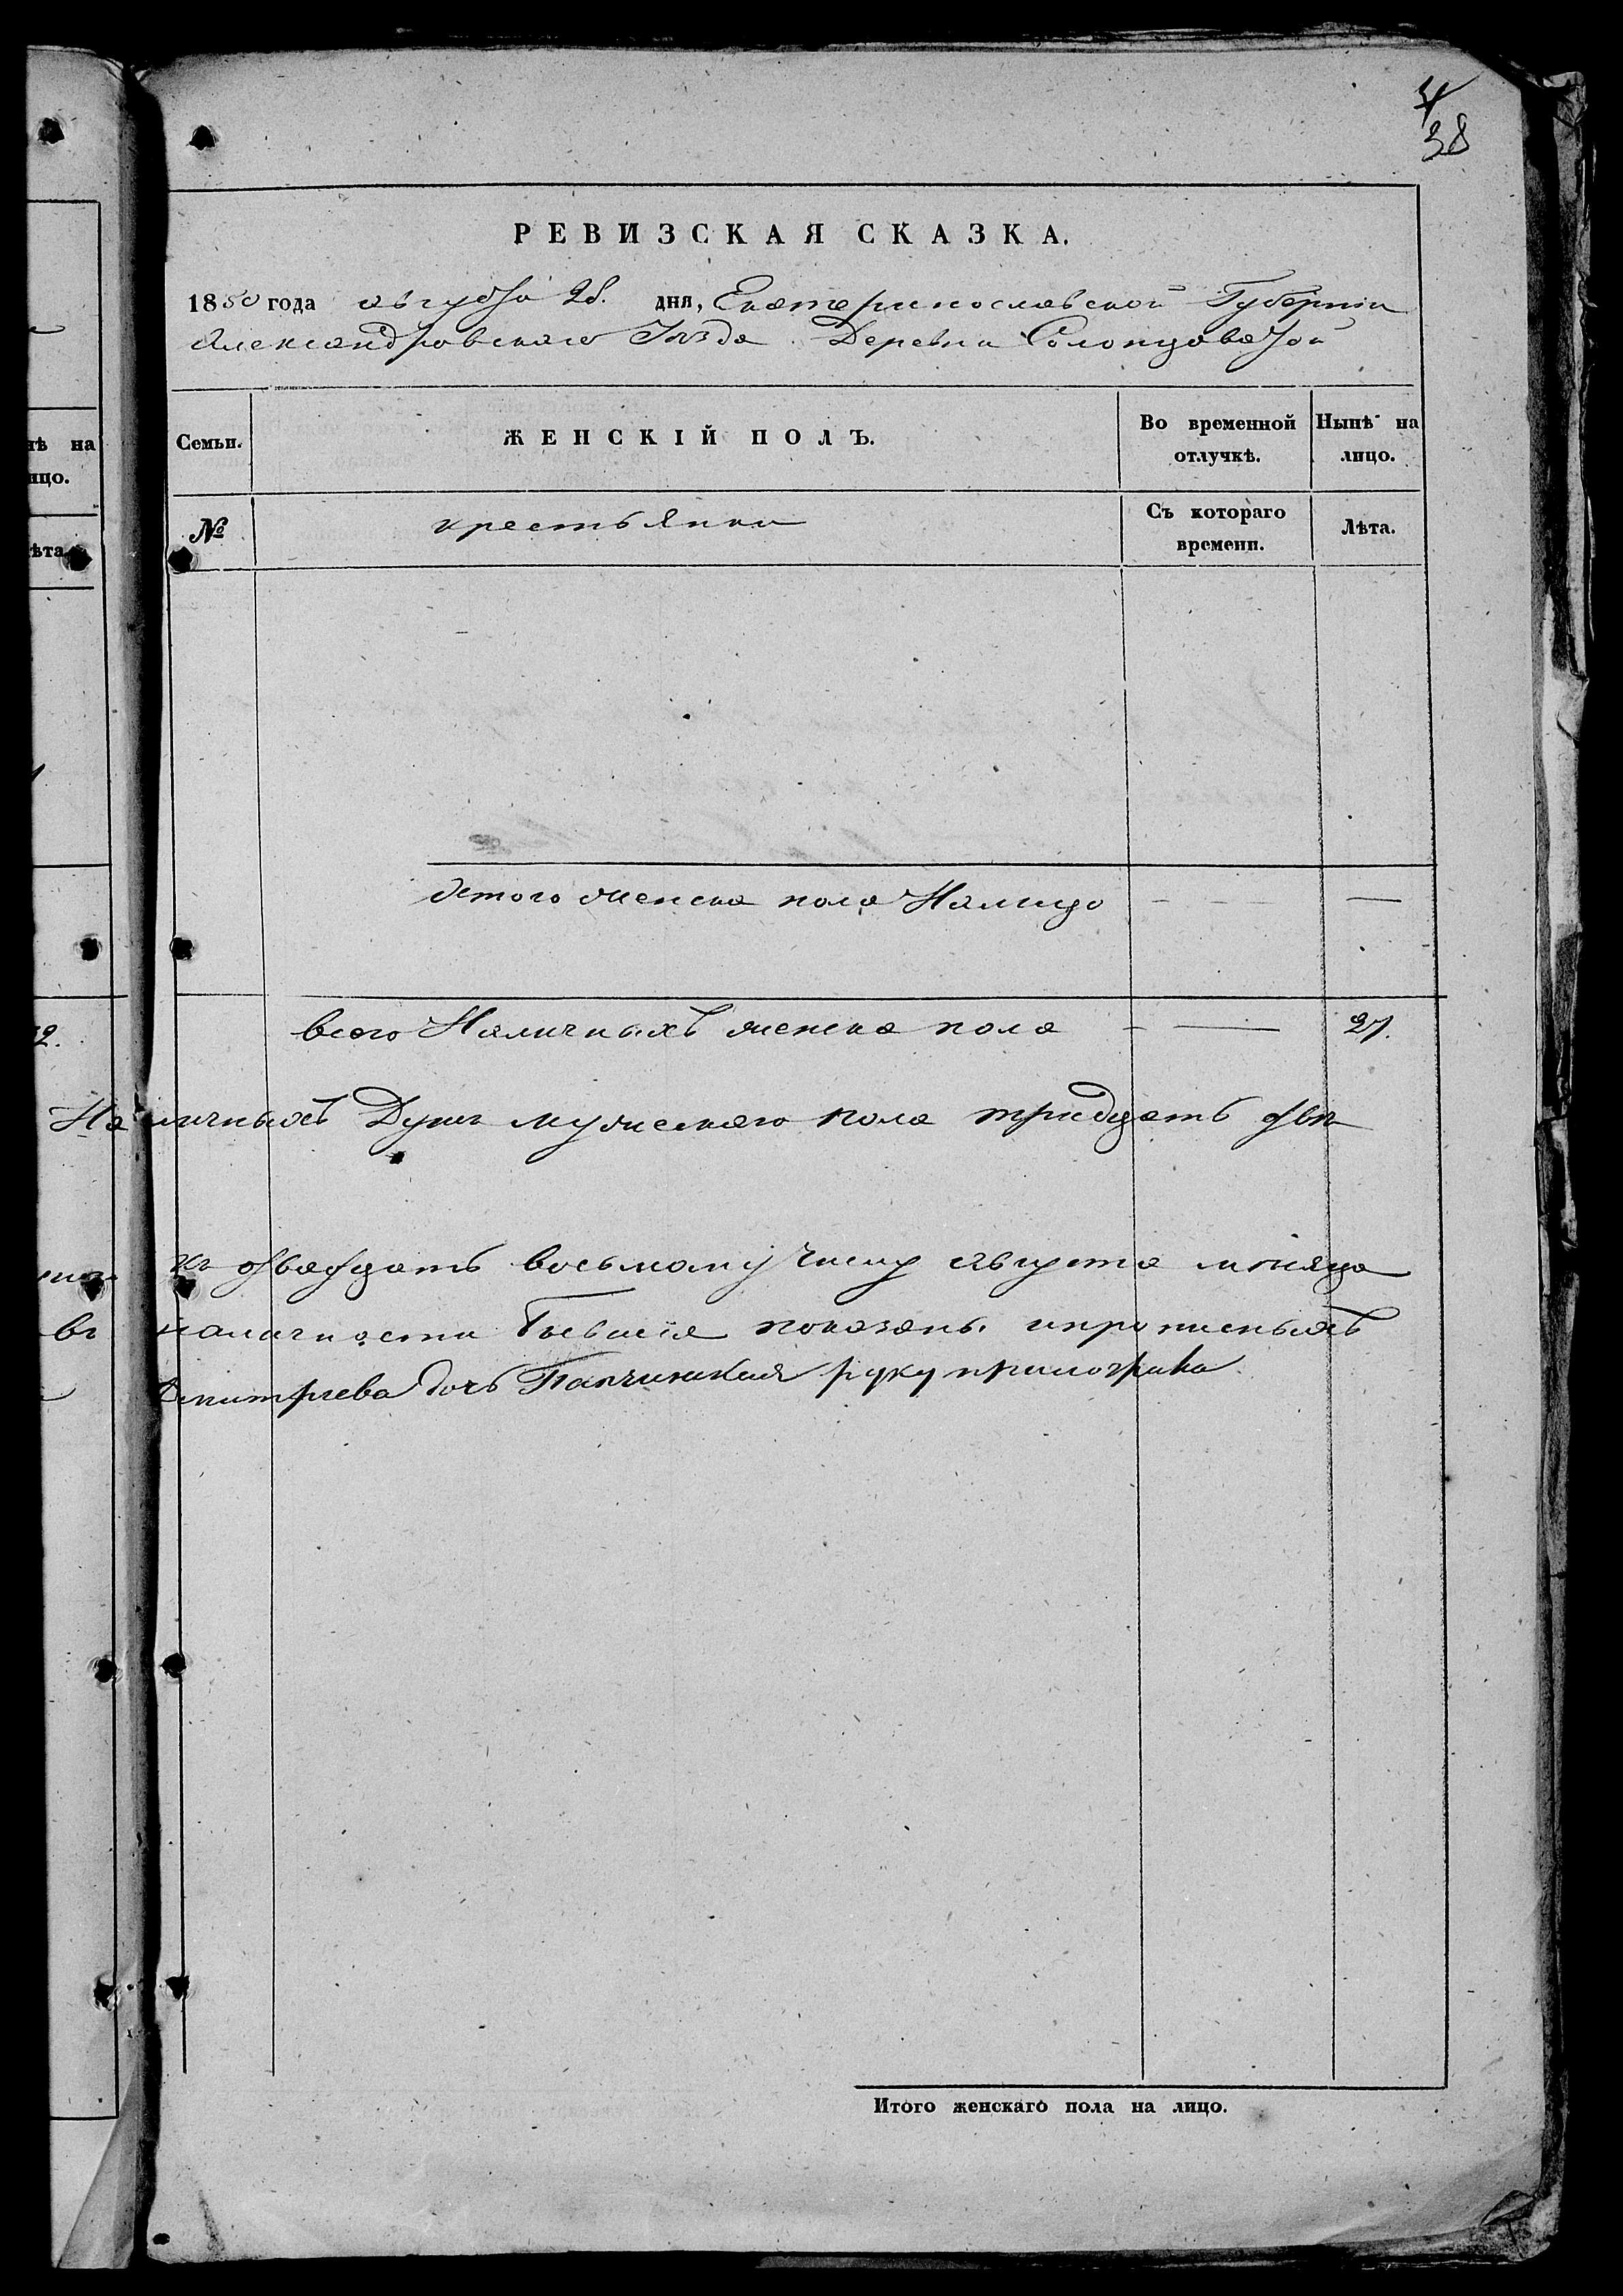 38
РЕВИЗСКАЯ СКАЗКА.
1850 года августа 28. дня, Екатеринославской Губернии
Александровскаго Уѣзда Деревни Солонцоватой
нѣ на
лицо.
Семьи.
ЖЕНСКІЙ ПОЛЪ.
Во временной отлучкѣ.
Нынѣ на лицо.
№
крестьянки
Съ котораго времени.
Лѣта.
Итого женска пола Налицо — —
всего Наличныхъ женска пола — 27.
Наличныхъ Душъ мужескаго пола тридцать двѣ
къ двадцать восьмому числу августа мѣсяца
въ наличности бывшія показаны и прописныхъ
Дмитриева дочь руку приложила
Итого женскаго пола на лицо.